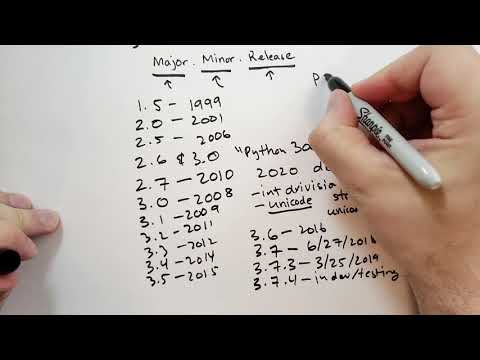 Major . Minor . Release
P
1.5 - 1999
2.0 - 2001
2.5 - 2006
2.6 & 3.0 "Python 30
2.7 - 2010 2020
3.0 - 2008 - int division
3.1 - 2009 - unicode
3.2 - 2011
3.3 - 2012 3.6 - 2016
3.4 - 2014 3.7 - 6/27/2018
3.5 - 2015 3.7.3 - 3/25/2019
3.7.4 - in dev/testing
Sharpie